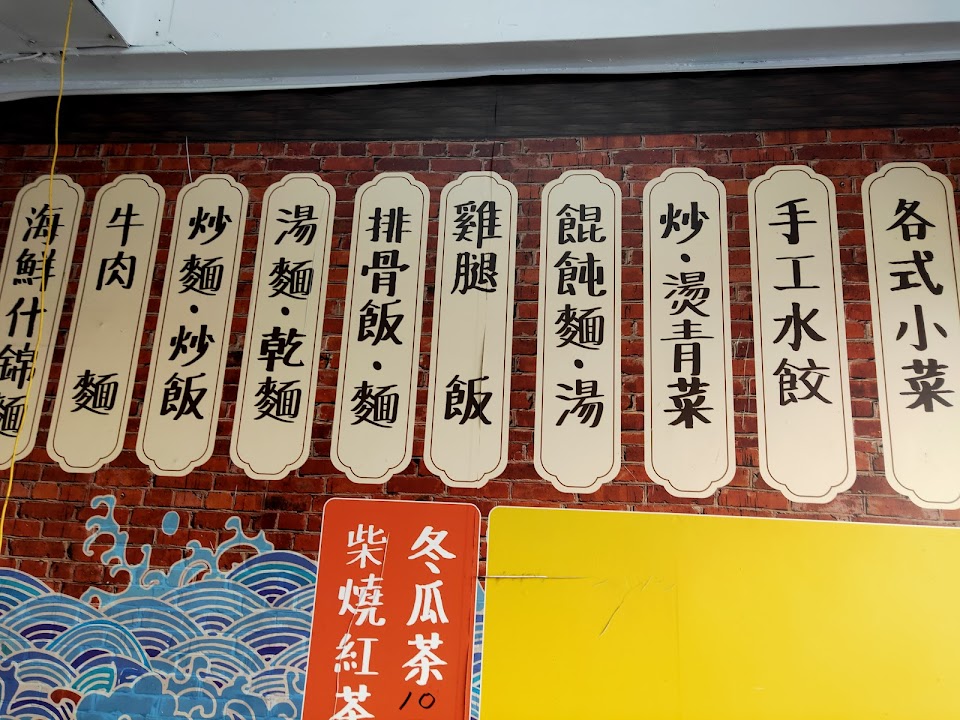 各式小菜
手工水餃
炒·燙青菜
餛飩麵·湯
雞腿飯
排骨飯·麵
湯麵·乾麵
炒麵·炒飯
牛肉麵
海鮮什錦麵
冬瓜茶10
柴燒紅茶